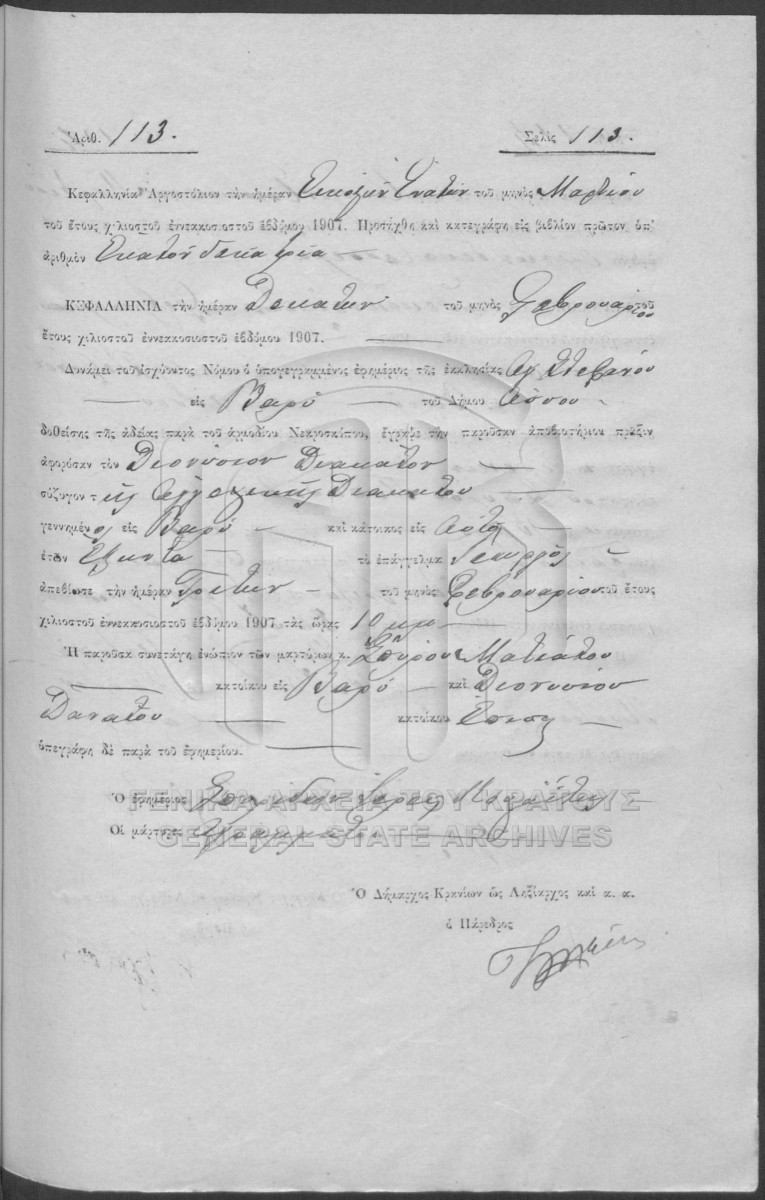 Ἀριθ. 113. Σελὶς 113.
Κεφαλληνία Ἀργοστόλιον τὴν ἡμέραν Εικοστήν Ενάτην τοῦ μηνὸς Μαρτίου
τοῦ ἔτους χιλιοστοῦ ἐννεακοσιοστοῦ ἑβδόμου 1907. Προσήχθη καὶ κατεγράφη εἰς βιβλίον πρῶτον ὑπ'
ἀριθμὸν Εκατόν δεκατρία
ΚΕΦΑΛΛΗΝΙΑ τὴν ἡμέραν Δεκάτην τοῦ μηνὸς Φεβρουαρίου τοῦ
ἔτους χιλιοστοῦ ἐννεακοσιοστοῦ ἑβδόμου 1907.
Δυνάμει τοῦ ἰσχύοντος Νόμου ὁ ὑπογεγραμμένος ἐφημέριος τῆς ἐκκλησίας Αγ Στεφάνου
εἰς Βαρύ τοῦ Δήμου Ασσου
δοθείσης τῆς ἀδείας παρὰ τοῦ ἁρμοδίου Νεκροσκόπου, ἔγραψε τὴν παροῦσαν ἀποβιωτήριον πρᾶξιν
ἀφορῶσαν τὸν Διονύσιον Διακάτον
σύζυγον τῆς Αγγελικῆς Διακάτου
γεννημένος εἰς Βαρύ καὶ κάτοικος εἰς
ἐτῶν Εξήντα τὸ ἐπάγγελμα Γεωργός
ἀπεβίωσε τὴν ἡμέραν Τρίτην τοῦ μηνὸς Φεβρουαρίου τοῦ ἔτους
χιλιοστοῦ ἐννεακοσιοστοῦ ἑβδόμου 1907 τὰς ὥρας 10 μμ
Ἡ παροῦσα συνετάγη ἐνώπιον τῶν μαρτύρων κ. Σπύρου Ματιάτου
κατοίκου εἰς Βαρύ καὶ Διονυσίου
κατοίκου
ὑπεγράφη δὲ παρὰ τοῦ ἐφημερίου.
Ὁ ἐφημέριος Σπυρίδων Ιερεύς
Οἱ μάρτυρες αγράμματοι
ΓΕΝΙΚΑ ΑΡΧΕΙΑ ΤΟΥ ΚΡΑΤΟΥΣ
GENERAL STATE ARCHIVES
Ὁ Δήμαρχος Κρανίων ὡς Ληξίαρχος καὶ α. α.
ὁ Πάρεδρος